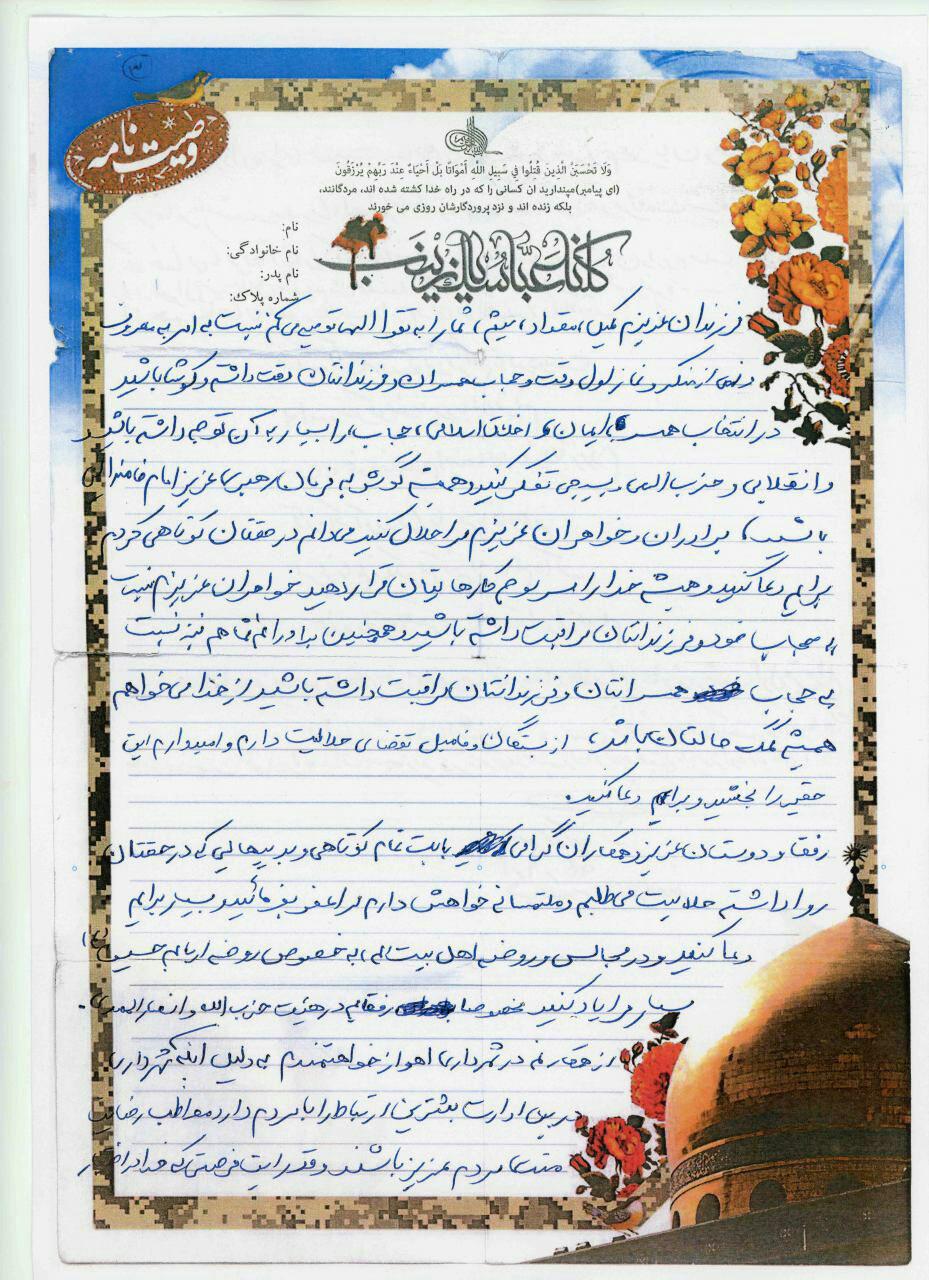 ۳
وصیت نامه
وَلَا تَحْسَبَنَّ الَّذِينَ قُتِلُوا فِي سَبِيلِ اللَّهِ أَمْوَاتًا بَلْ أَحْيَاءٌ عِنْدَ رَبِّهِمْ يُرْزَقُونَ
(ای پیامبر)مپندارید ان کسانی را که در راه خدا کشته شده اند، مردگانند،
بلکه زنده اند و نزد پروردگارشان روزی می خورند
نام:
نام خانوادگی:
نام پدر:
شماره پلاک:
کلنا عباسک یا زینب
فرزندان عزیزم کمیل، مقداد، میثم، شما را به تقوا الهی توصیه می کنم نسبت به امر به معروف
و نهی از منکر و نماز اول وقت و حجاب همسران و فرزندانتان دقت داشته و کوشا باشید
در انتخاب همسر با ایمان و اخلاق اسلامی، حجاب، را بسیار به آن توجه داشته باشید
و انقلابی و حزب الهی و بسیجی تفکر کنید و همیشه گوش به فرمان رهبری عزیز امام خامنه ای
باشید، برادران و خواهران عزیزم مرا حلال کنید می دانم در حقتان کوتاهی کردم
برایم دعا کنید و همیشه خدا را سر لوحه کارهایتان قرار دهید خواهران عزیزم نسبت
به حجاب خود و فرزندانتان مراقبت داشته باشید و همچنین برادرانم شما هم نیز نسبت
به حجاب همسرانتان و فرزندانتان مراقبت داشته باشید از خدا می خواهم
همیشه کمک حالتان باشد، از بستگان و فامیل تقضای حلالیت دارم و امیدوارم این
حقیر را ببخشید و برایم دعا کنید.
رفقا و دوستان عزیز و همکاران گرامی بابت تمام کوتاهی و بدیهایی که در حقتان
روا داشته حلالیت می طلبم و ملتمسانه خواهش دارم مرا عفو بفرمائید و بسیار برایم
دعا کنید و در مجالس و روضه اهل بیت الهی، به خصوص روضه ارباب حسین (ع)
بسیار مرا یاد کنید مخصوصا رفقایم در هیئت حزب الله و انصار المهدی.
از همکارانم در شهرداری اهواز خواهشمندم به دلیل اینکه شهرداری
در بین ادارات بیشترین ارتباط را با مردم دارد مواظب رضایت
مردم عزیز باشند و قدر این فرصتی که خدا در